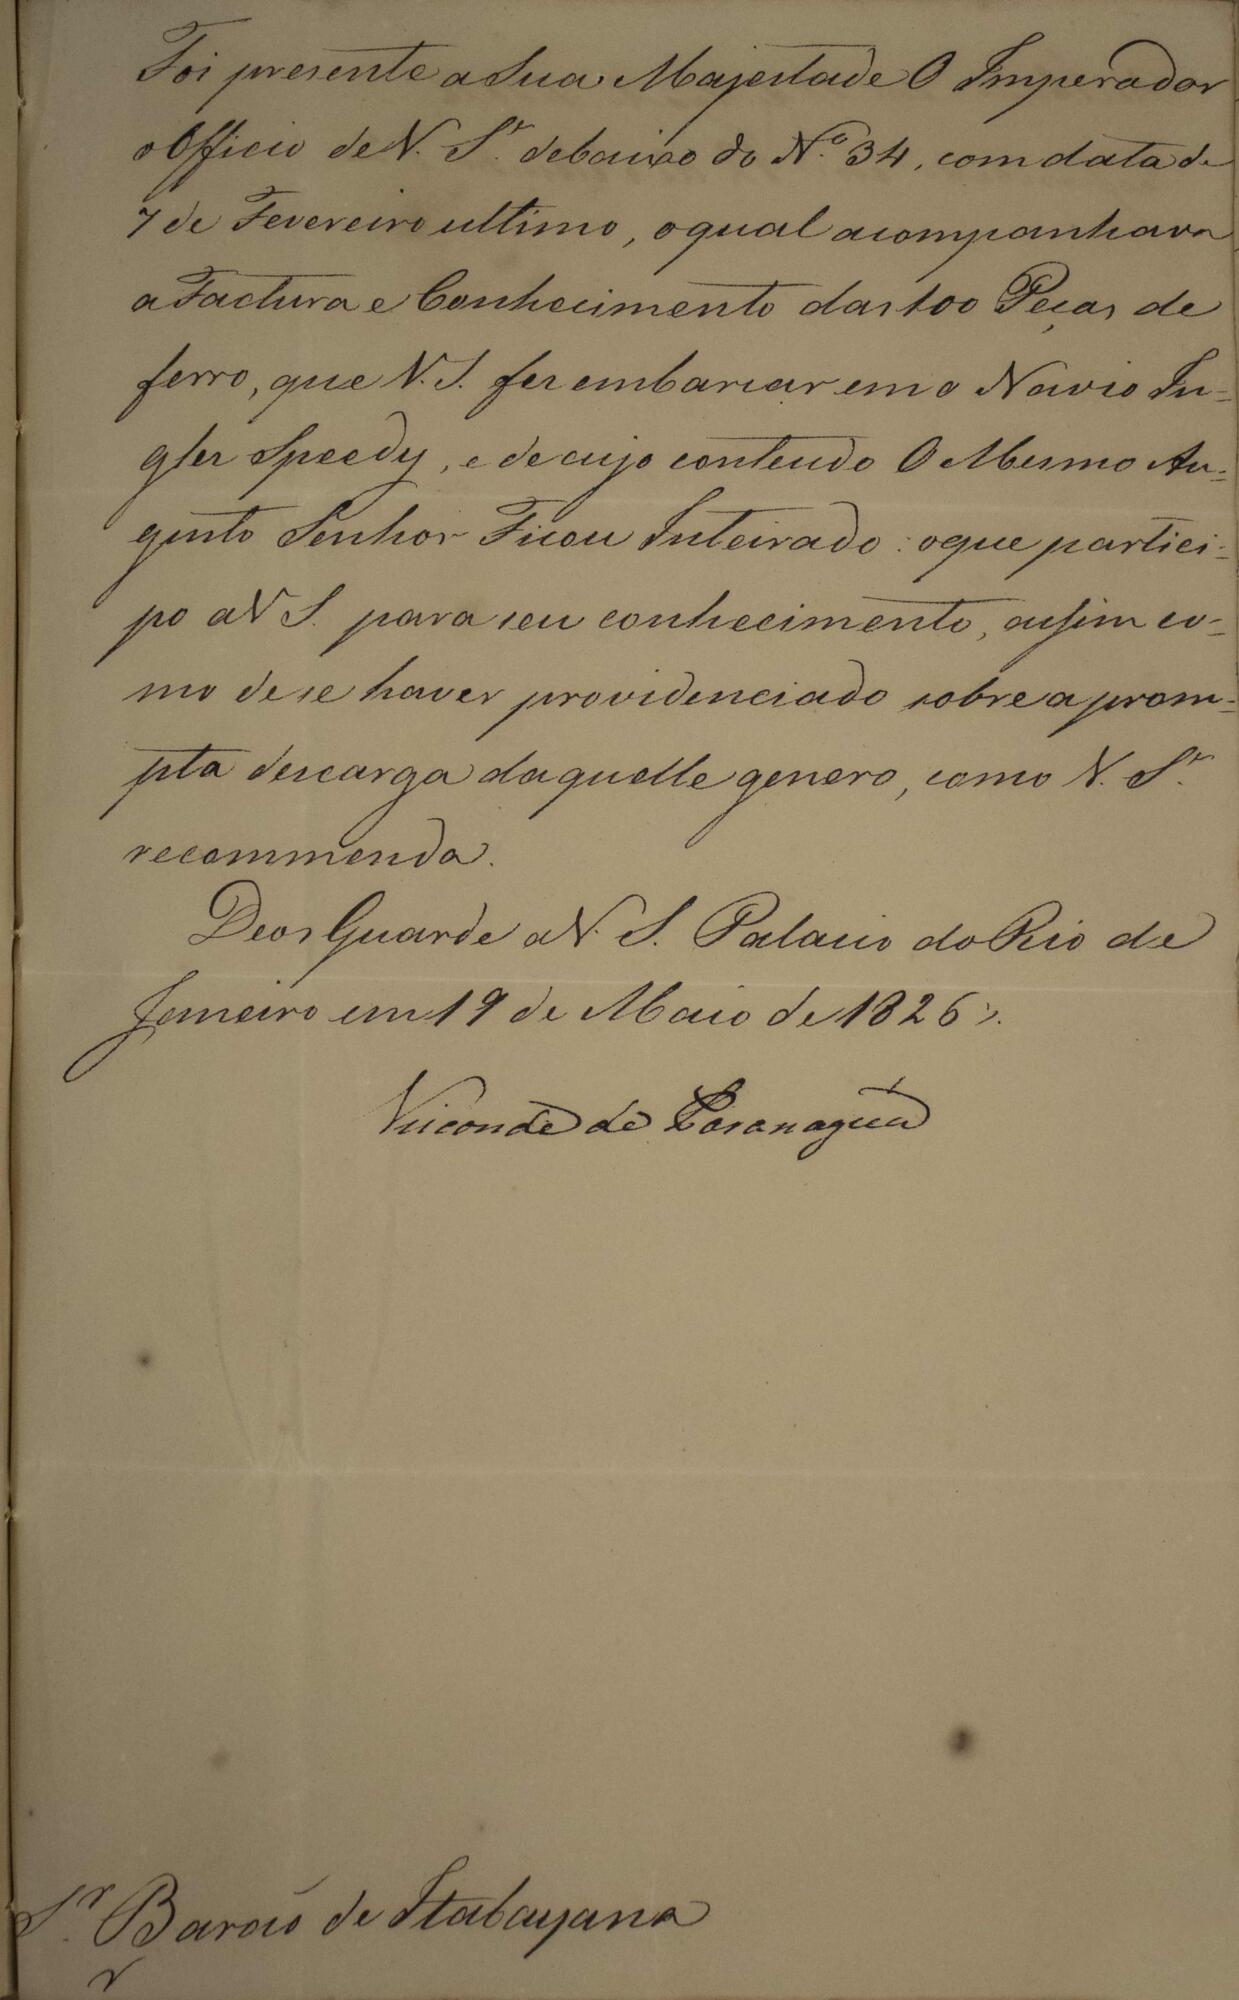 Foi presente a Sua Majestade O Imperador
o Officio de V. S.ª debaixo do N.º 34, com data de
7 de Fevereiro ultimo, o qual acompanhava
a Factura e Conhecimento das 100 Peças de
ferro, que V. S. fez embarcar em o Navio In=
glez Speedy, e de cujo contendo O Mesmo Au=
gusto Senhor Ficou Inteirado: o que partici=
po a V S. para seu conhecimento, assim co=
mo de se haver providenciado sobre a prom=
pta descarga daquelle genero, como V. S.ª
recommenda.
Deos Guarde a V. S. Palacio do Rio de
Janeiro em 19 de Maio de 1826
Visconde de Paranaguá
S.r Barão de Itabayana